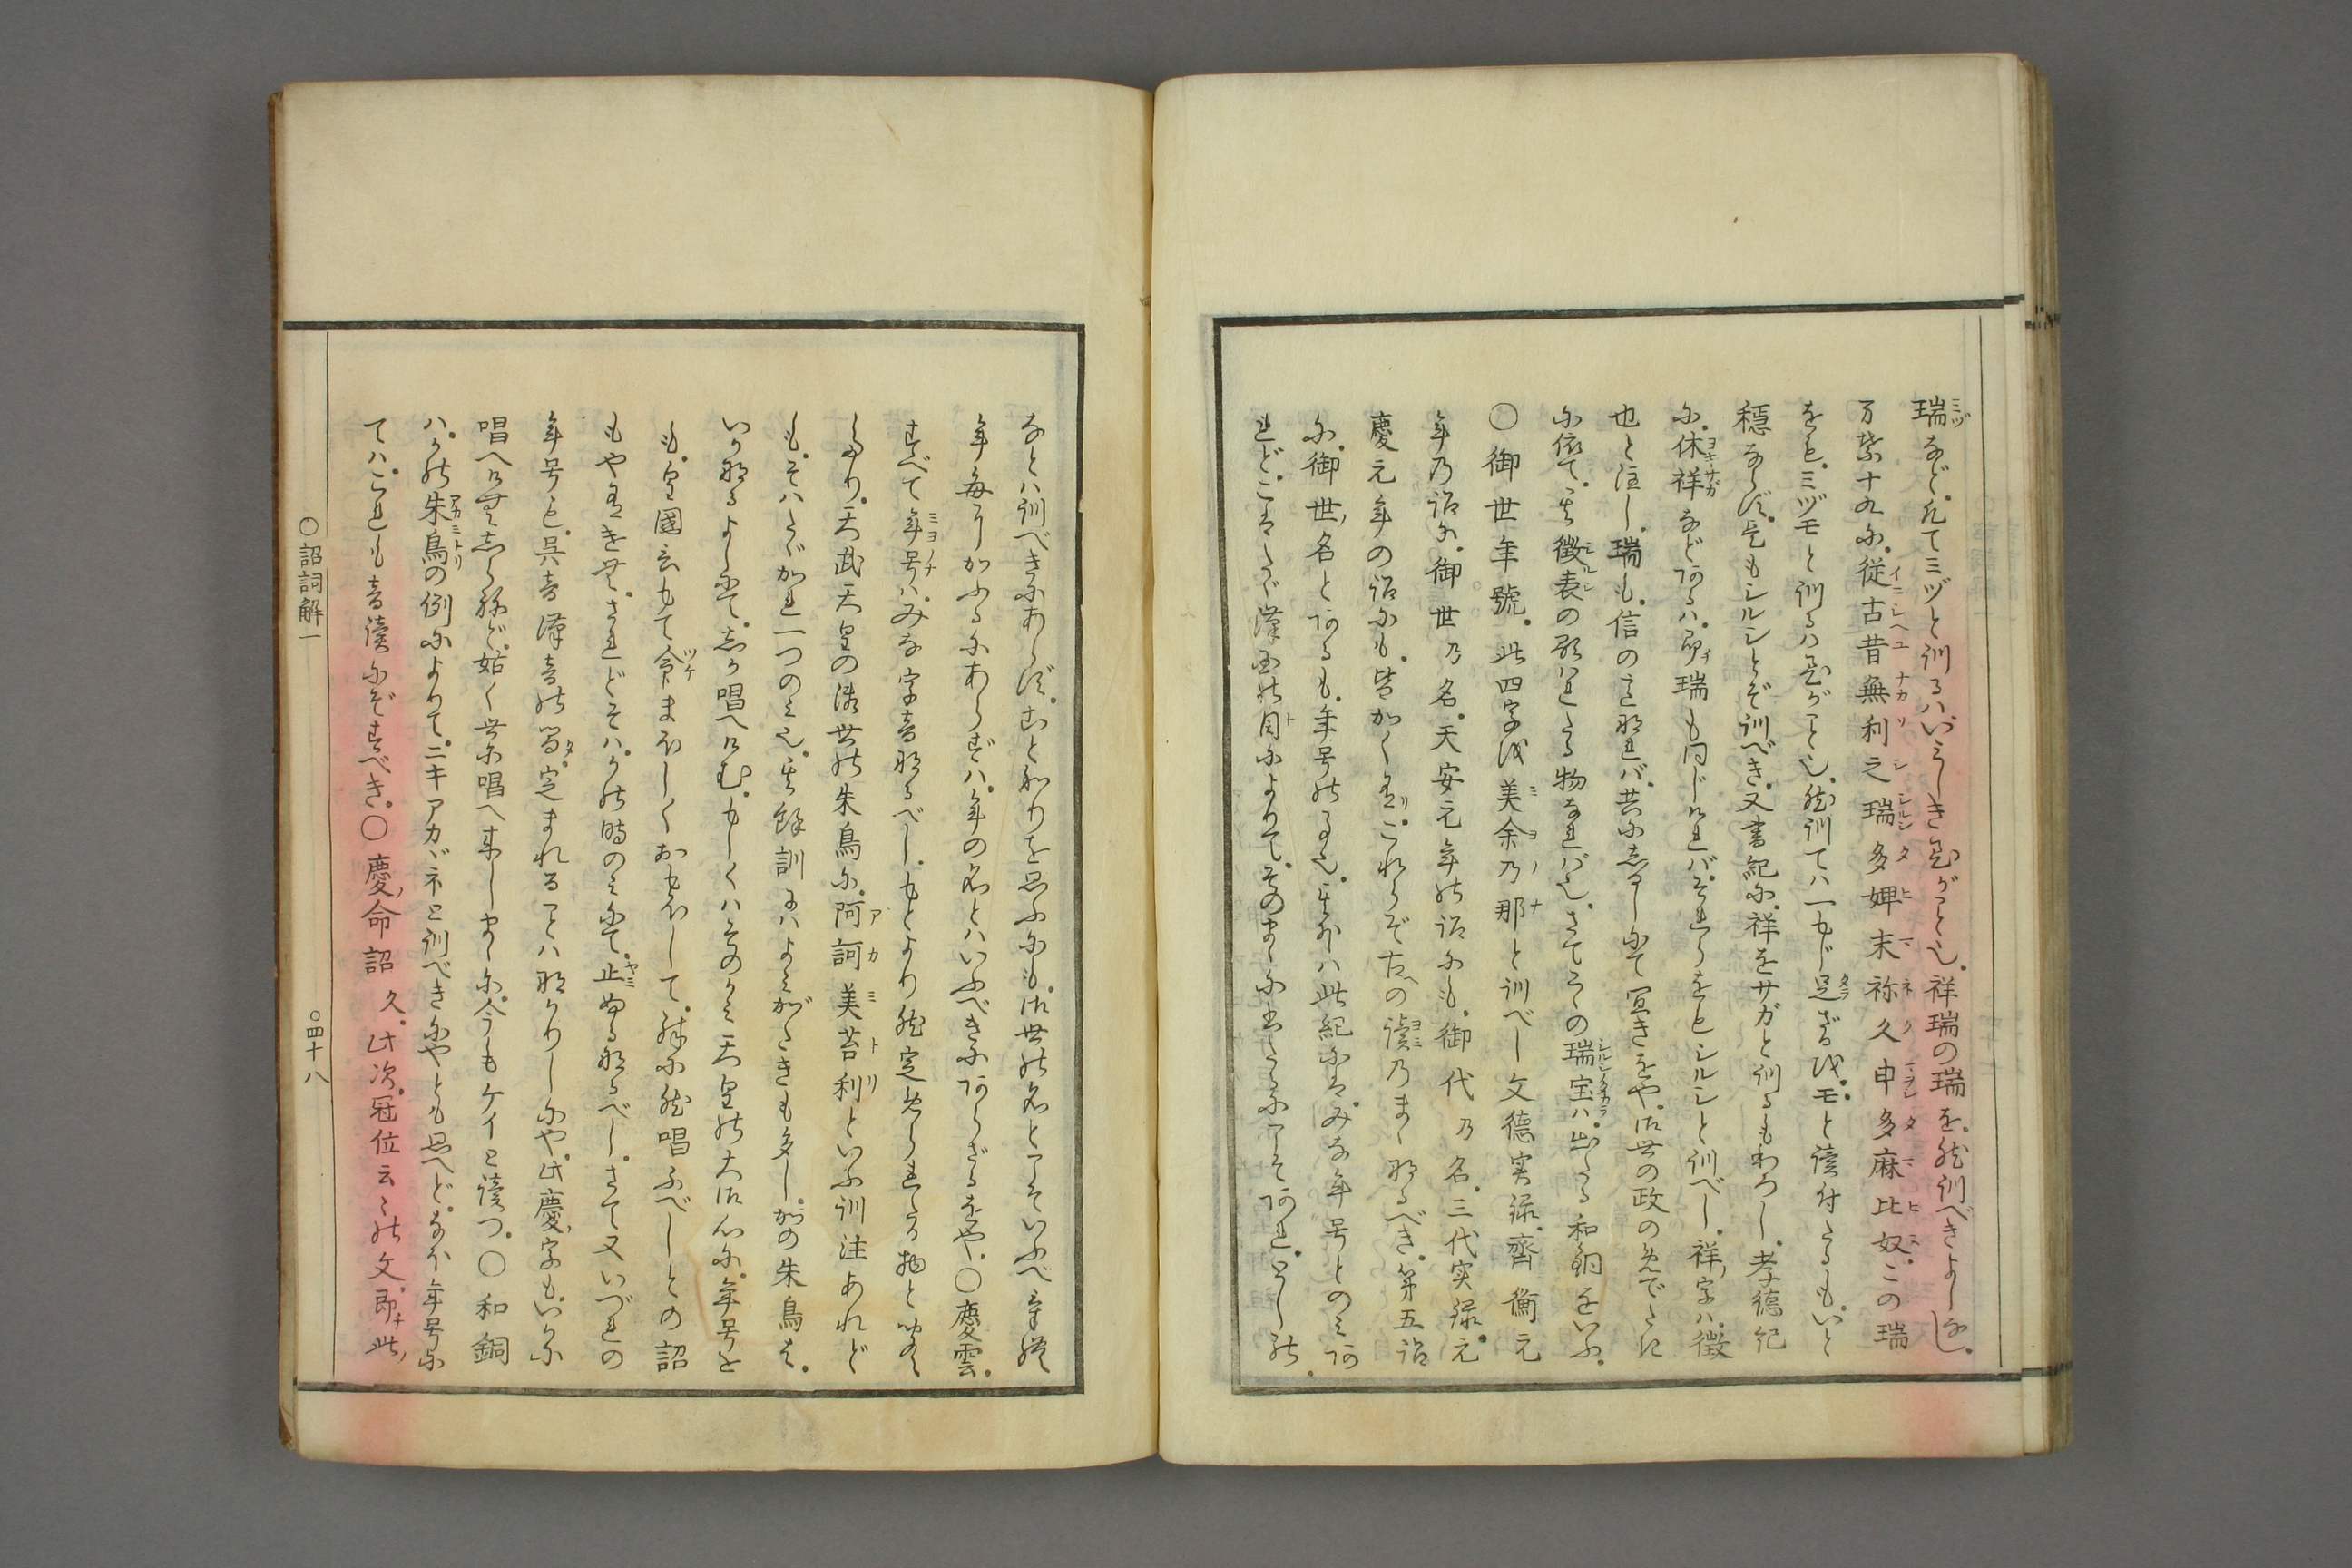 瑞など、凡てミヅと訓るハ、いみしきひがこと也。祥瑞の瑞を、然訓べきよしなし。
万葉十九に、従古昔無利之瑞多婢末祢久申多麻比奴。この瑞
をも、ミヅモと訓るハひがこと也。然訓てハ一もじ足ざる故、モと読付たるも、いと
穏ならず。是もシルシとぞ訓べき。又書紀に、祥をサガと訓るもわろし。孝徳紀
に、休祥などあるハ、即瑞も同じければ、それらをもシルシと訓べし。祥字ハ、徴
也と注し、瑞も、信の意なれバ、共にしるしにて宜きをや。御世の政のめでたき
に依て、其徴表の顕ハれたる物なれバ也。さてこゝの瑞宝ハ、出たる和銅をいふ。
〇御世年號。此四字ハ美余乃那と訓べし文徳実録、齊衡元
年乃詔に、御世乃名、天安元年の詔にも、御代乃名、三代実録、元
慶元年の詔にも、皆かく有リ。これらぞ古への読のまゝなるべき。第五詔
に、御世名とあるも、年号の事也。其外ハ此紀にハ、みな年号とのミあ
れど、こハたゞ漢国の目によりて、そのまゝに書たるにこそあれ。とし の
なとハ訓べきにあらず。ちと和りを思ふにも、御世の名とこそいふべけれ
年毎にかふるにあらざれハ、年の名とハいふべきにあらざるをや。〇慶雲。
すべて年号ハ、みな字音なるべし。もとより然定められたる物と聞え
たり。天武天皇の御世の朱鳥に、阿訶美苔利といふ訓注あれど
も、そハたゞかれ一つのミ也。其餘訓にハよミがたきも多し。かの朱鳥は、
いかなるよしにて、しか唱へけむ。もしくハそのかミ天皇の大御心に、年号を
も、皇國言もて命まほしくおもほして、殊に然唱ふべしとの詔
もや有けむ。されどそハ、その時のミにて、止ぬるなるべし。さて又いづれの
年号も、呉音漢音の習定まれることハなかりしにや。此慶字も、いかに
唱へけむしらねど、姑く世に唱へ来しまゝに、今もケイと読つ。〇和銅
ハ、かの朱鳥の例によりて、ニキアカゞネと訓べきにやとも思へど、なほ年号に
てハ、これも音読にぞすべき。〇慶命詔久。此次、冠位云々の文、即此
〇詔詞解一
〇四十八